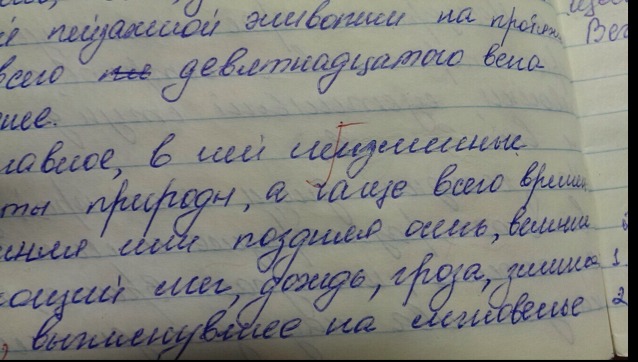 й пейзажной живописи на протяжен
всего девятнадцатого века
ие.
лавное, в ней неизменные
ты природы, а чаще всего времен
или поздняя осень, весенний
ющий снег, дождь, гроза, зимнее 1
, выглянувшее на мгновенье 2